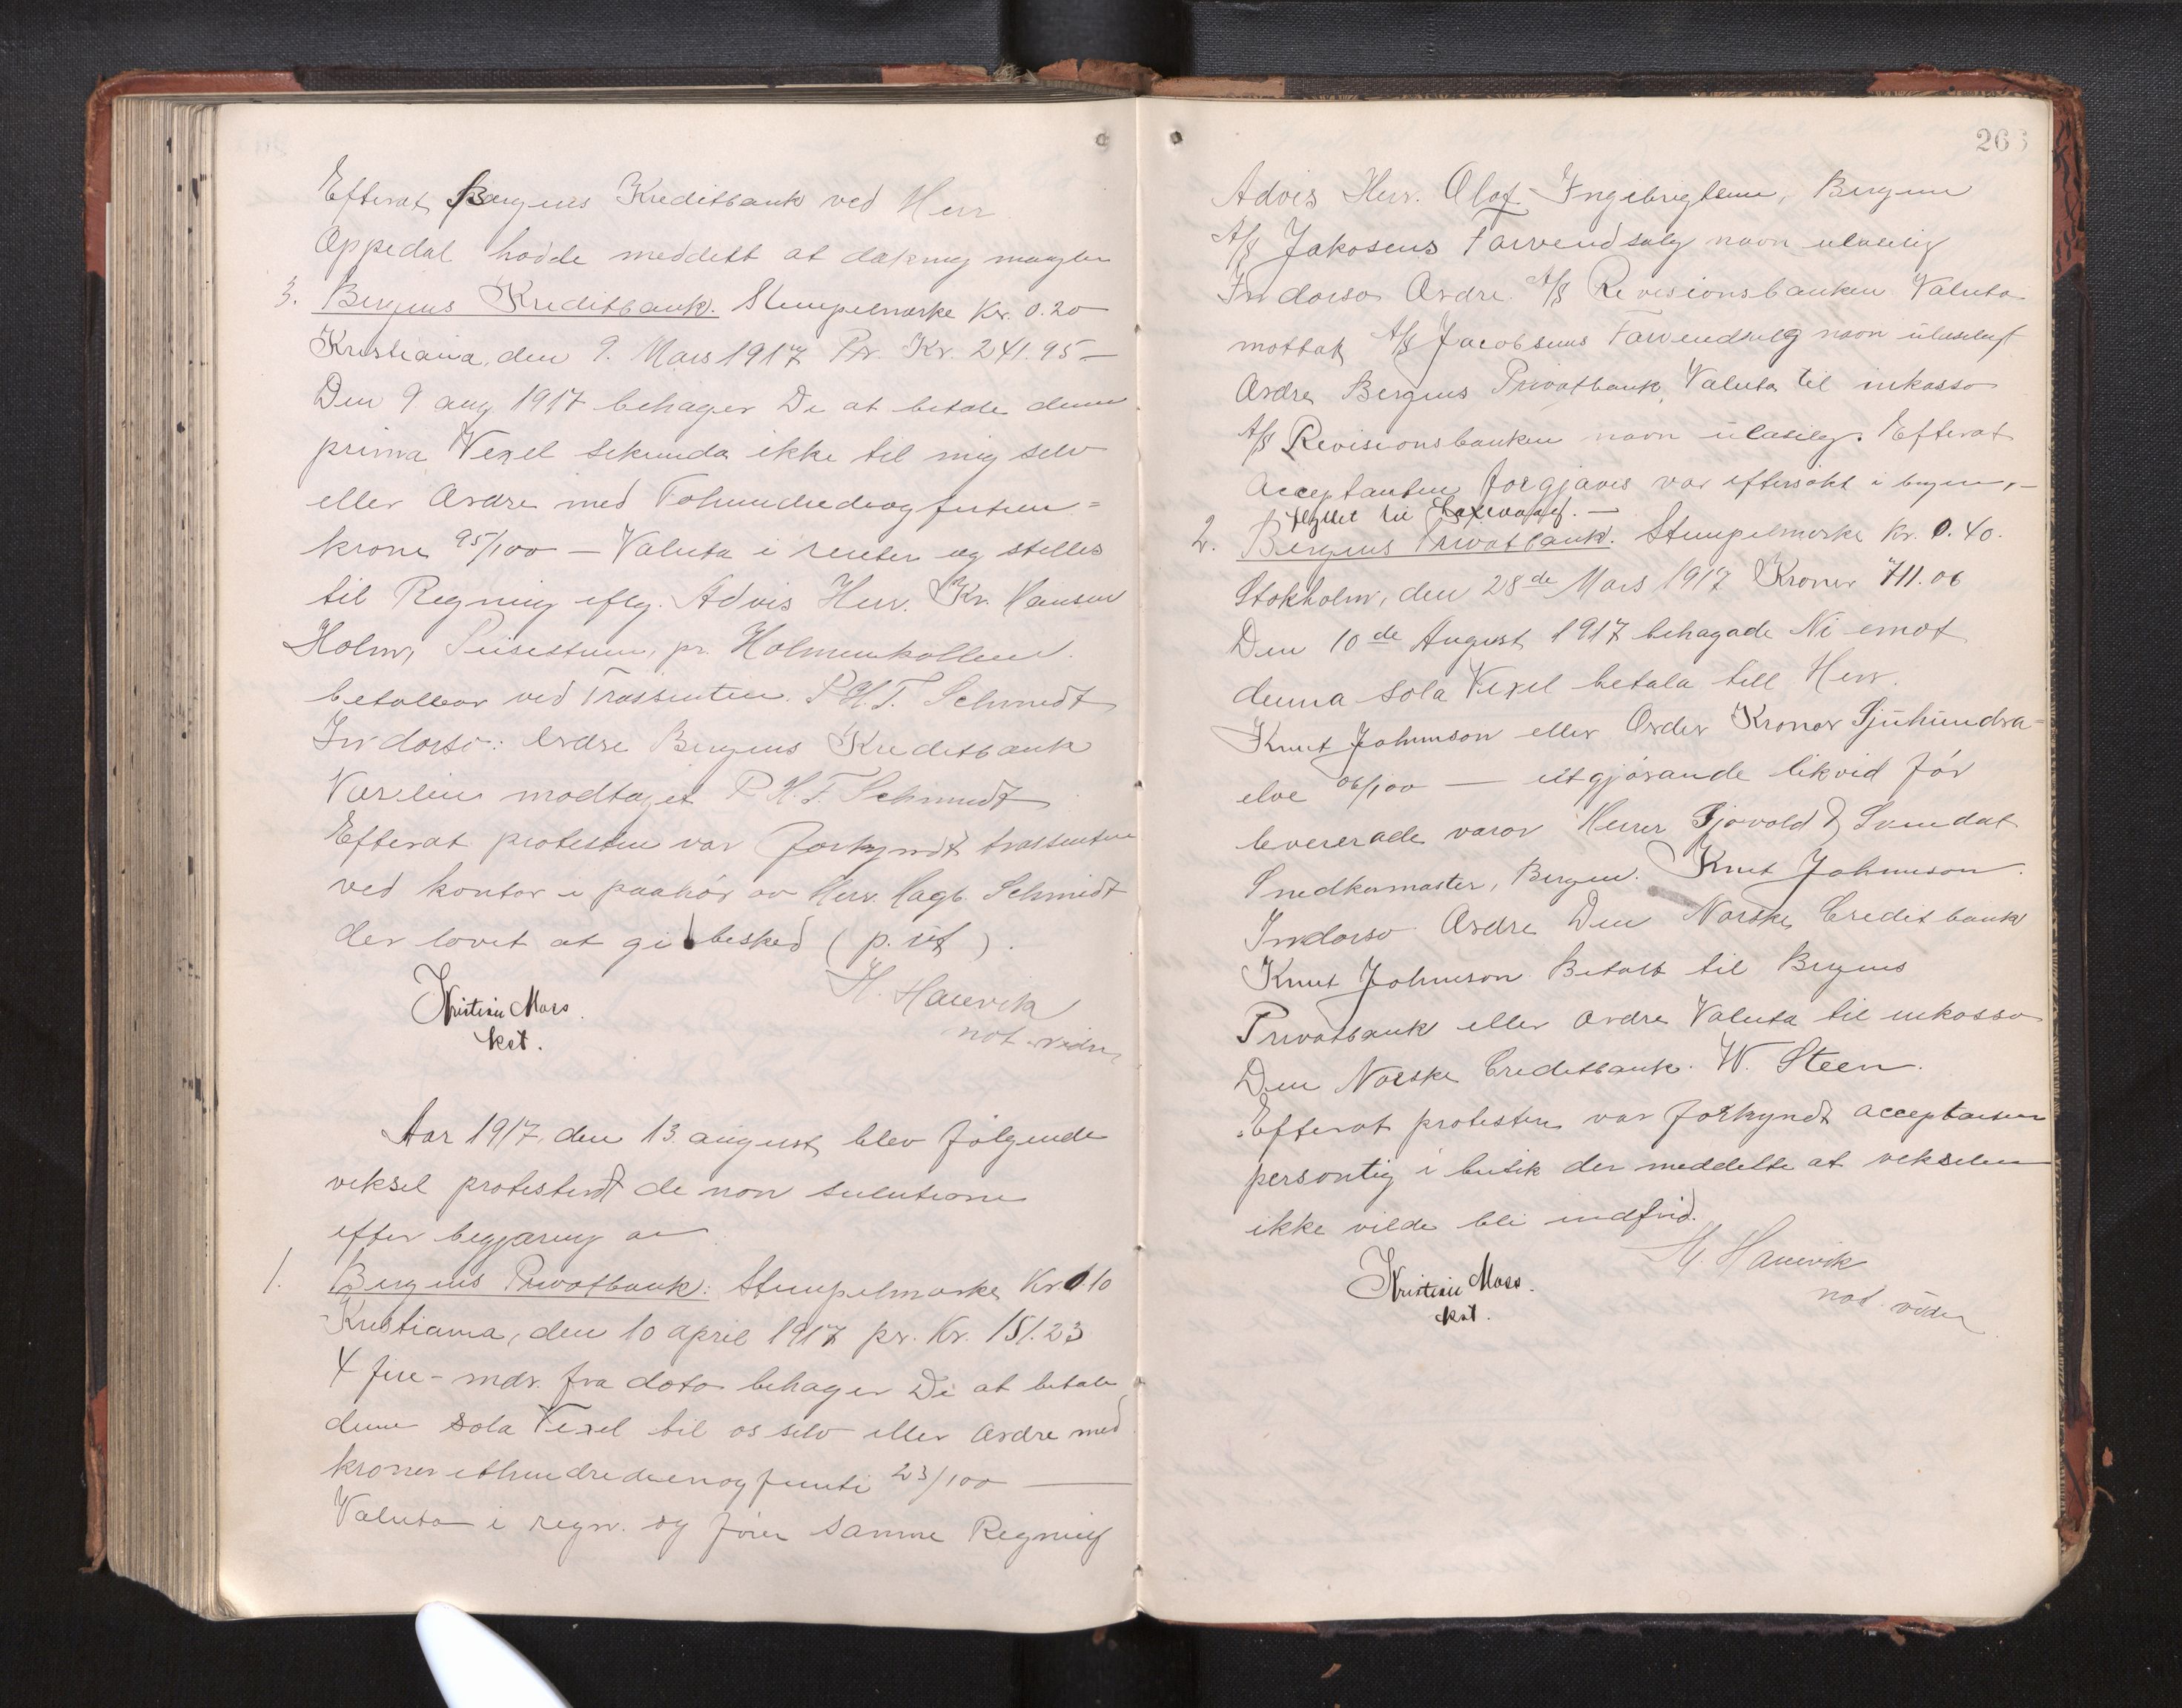 Efterat Bergens Kreditbank ved Herr
Oppedal hadde meddelt at dækning mangler
3. Bergens Kreditbank. Stempelmerke Kr. 0.20
Kristiania, den 9. Mars 1917 Pr. Kr. 241.95 —
Den 9 aug 1917 behager De at betale denne
prima Vexel sekunda ikke til mig selv
eller Ordre med Tohundredeogførtien=
krone 95/100 — Valuta i renter og stilles
til Regning iflg. Advis Herr. Kr. Hansen
Holm, pr. Holmenkollen.
betalbar ved Trassenten. P.H.T. Schmidt
Indorso: Ordre Bergens Kreditbank
Værdien modtaget P.H.T. Schmidt
Efterat protesten var forkyndt trassenten
ved kontor i paahør av Herr. Hagb. Schmidt
der lovet at gi besked (p. ut).
Kristian Mars. H. Hauvik
kst. not. vidne
Aar 1917, den 13. august blev følgende
veksel protestert de non solutione
efter begjæring av
1. Bergens Privatbank: Stempelmerke Kr. 0.10
Kristiania, den 10 april 1917 pr. Kr. 151.23
4 fire - mdr. fra dato behager De at betale
denne sola Vexel til os selv eller Ordre med
kroner ethundredeenogfemti 23/100 —
Valuta i regn. og fører samme i Regning
266
Advis Herr. Olaf Ingebrigtsen, Bergen
A/S Jakosens Farvendsalg navn ulæselig
Indorso Ordre A/S Revisionsbanken Valuta
mottat A/S Jacobsens Farvendsalg navn ulæseligt
Ordre Bergens Privatbank, Valuta til inkasso
A/S Revisionsbanken navn ulæselig. Efterat
Acceptanten forgjæves var eftersøkt i byen, —
flyttet til Laxevaag. —
2. Bergens Privatbank. Stempelmerke Kr. 0.40.
Stokholm, den 28de Mars 1917 Kroner 711.06
Den 10de August 1917 behagade Ni emot
denna sola Vexel betala till Herr.
Knut Johnnson eller Order Kronor Sjuhundra=
elve 06/100 — utgjørande likvid før
levererade varor Herrer Gjøvold & Svendal
Snedkermaster, Bergen. Knut Johnnson.
Indorso Ordre Den Norske Creditbank
Knut Johnnson Betalt til Bergens
Privatbank eller ordre Valuta til inkasso
Den Norske Creditbank. W. Steen.
Efterat protesten var forkyndt acceptanten
personlig i butik der meddelte at vekselen
ikke vilde bli indfrid.
Kristian Mars. H. Hauvik
kst. not. vidne